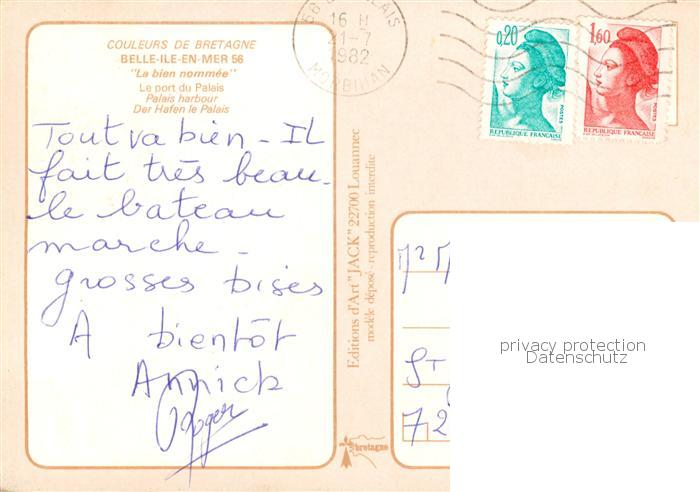 COULEURS DE BRETAGNE
BELLE-ILE-EN-MER 56
"La bien nommée"
Le port du Palais
Palais harbour
Der Hafen le Palais
Tout va bien - Il
fait très beau.
le bateau
marche -
grosses bises
A bientôt
Annick
Roger
Editions d'Art "JACK" 22700 Louannec
modèle déposé - reproduction interdite
bretagne
16 H
1982
MORBIHAN
0,20
POSTES
REPUBLIQUE FRANÇAISE
1,60
POSTES
REPUBLIQUE FRANÇAISE
ST
72
privacy protection
Datenschutz